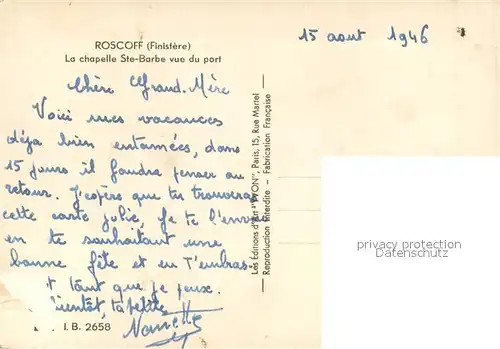 ROSCOFF (Finistère)
La chapelle Ste-Barbe vue du port
15 aout 1946
Chère Grand. Mère
Voici mes vacances
déja bien entamées, dans
15 jours il faudra penser au
retour. J'espère que tu trouveras
cette carte jolie, je te l'envoie
en te souhaitant une
bonne fête et en t'embras-
tant que je peux.
ta petite
Nanette
I.B. 2658
Les Editions d'Art "YVON", Paris, 15, Rue Martel
Reproduction Interdite - Fabrication Française
privacy protection
Datenschutz